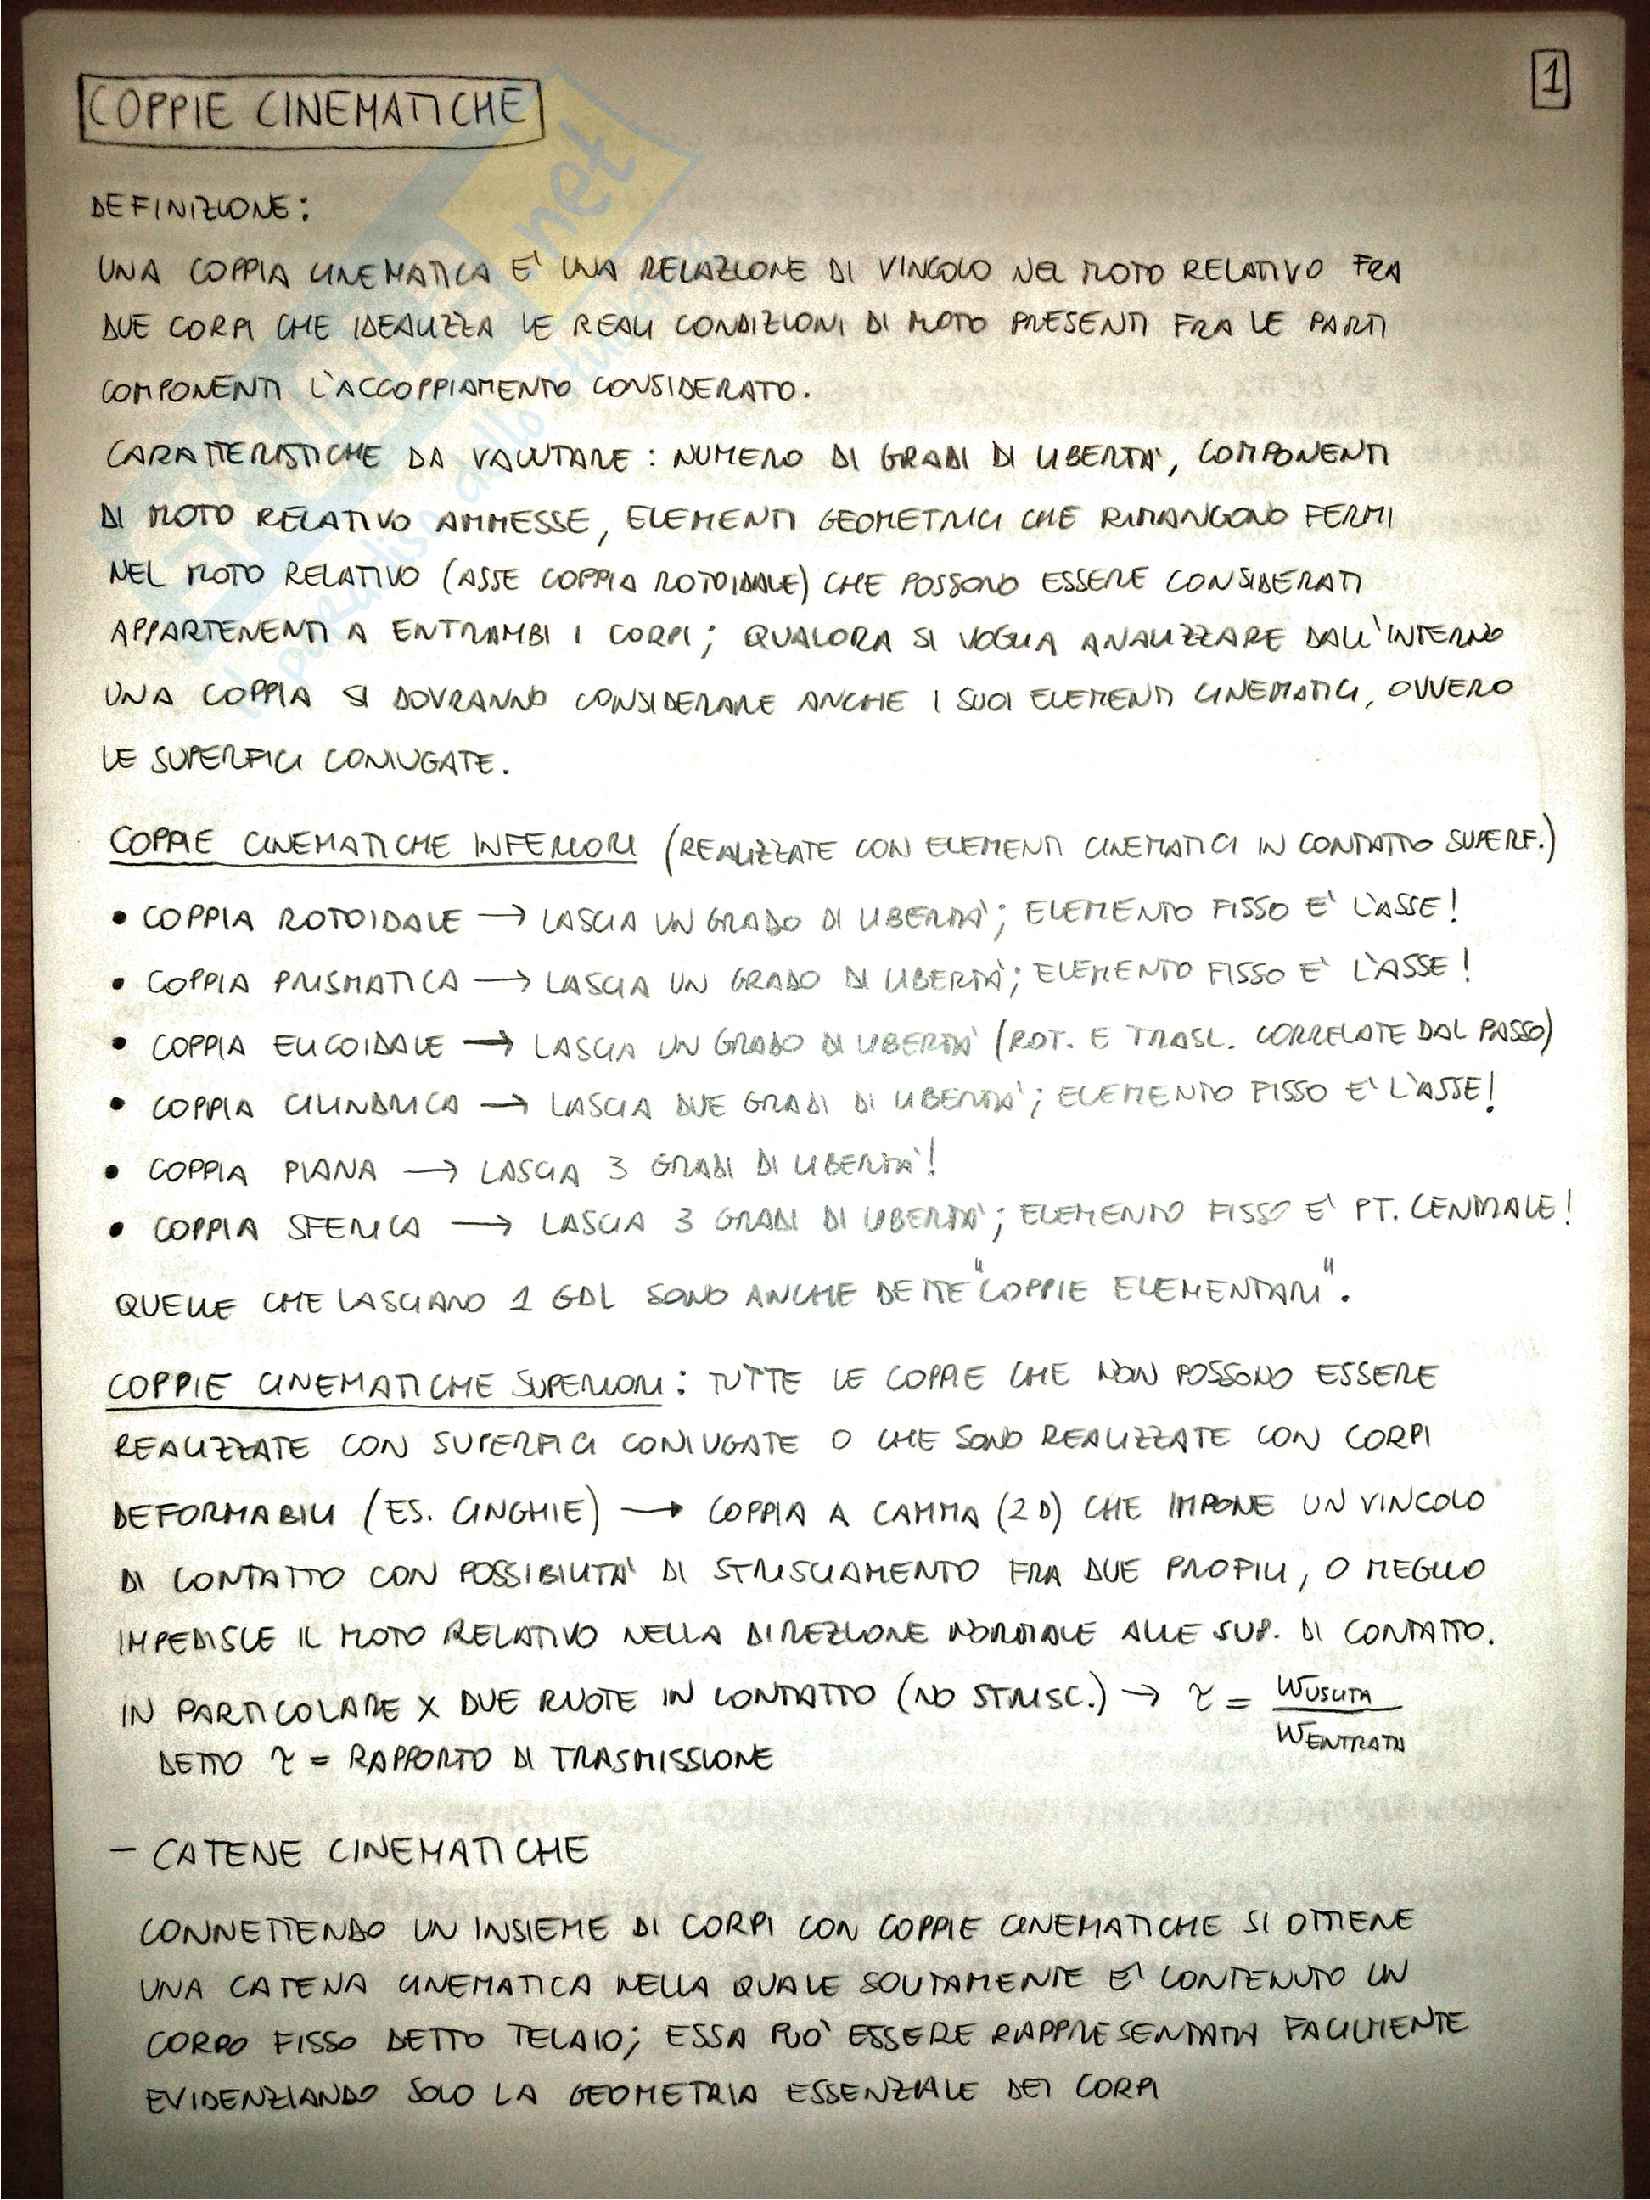 COPPIE CINEMATICHE
1
DEFINIZIONE:
UNA COPPIA CINEMATICA E' UNA RELAZIONE DI VINCOLO NEL MOTO RELATIVO FRA
DUE CORPI CHE IDEALIZZA LE REALI CONDIZIONI DI MOTO PRESENTI FRA LE PARTI
COMPONENTI L'ACCOPPIAMENTO CONSIDERATO.
CARATTERISTICHE DA VALUTARE: NUMERO DI GRADI DI LIBERTA', COMPONENTI
DI MOTO RELATIVO AMMESSE, ELEMENTI GEOMETRICI CHE RIMANGONO FERMI
NEL MOTO RELATIVO (ASSE COPPIA ROTOIDALE) CHE POSSONO ESSERE CONSIDERATI
APPARTENENTI A ENTRAMBI I CORPI; QUALORA SI VOGLIA ANALIZZARE DALL'INTERNO
UNA COPPIA SI DOVRANNO CONSIDERARE ANCHE I SUOI ELEMENTI CINEMATICI, OVVERO
LE SUPERFICI CONIUGATE.
COPPIE CINEMATICHE INFERIORI (REALIZZATE CON ELEMENTI CINEMATICI IN CONTATTO SUPERF.)
• COPPIA ROTOIDALE → LASCIA UN GRADO DI LIBERTA'; ELEMENTO FISSO E' L'ASSE!
• COPPIA PRISMATICA → LASCIA UN GRADO DI LIBERTA'; ELEMENTO FISSO E' L'ASSE!
• COPPIA ELICOIDALE → LASCIA UN GRADO DI LIBERTA' (ROT. E TRASL. CORRELATE DAL PASSO)
• COPPIA CILINDRICA → LASCIA DUE GRADI DI LIBERTA'; ELEMENTO FISSO E' L'ASSE!
• COPPIA PIANA → LASCIA 3 GRADI DI LIBERTA'!
• COPPIA SFERICA → LASCIA 3 GRADI DI LIBERTA'; ELEMENTO FISSO E' PT. CENTRALE!
QUELLE CHE LASCIANO 1 GDL SONO ANCHE DETTE "COPPIE ELEMENTARI".
COPPIE CINEMATICHE SUPERIORI: TUTTE LE COPPIE CHE NON POSSONO ESSERE
REALIZZATE CON SUPERFICI CONIUGATE O CHE SONO REALIZZATE CON CORPI
DEFORMABILI (ES. CINGHIE) → COPPIA A CAMMA (2D) CHE IMPONE UN VINCOLO
DI CONTATTO CON POSSIBILITA' DI STRISCIAMENTO FRA DUE PROFILI, O MEGLIO
IMPEDISCE IL MOTO RELATIVO NELLA DIREZIONE NORMALE ALLE SUP. DI CONTATTO.
IN PARTICOLARE X DUE RUOTE IN CONTATTO (NO STRISC.) → τ = WUSCITA / WENTRATA
DETTO τ = RAPPORTO DI TRASMISSIONE
- CATENE CINEMATICHE
CONNETTENDO UN INSIEME DI CORPI CON COPPIE CINEMATICHE SI OTTIENE
UNA CATENA CINEMATICA NELLA QUALE SOLITAMENTE E' CONTENUTO UN
CORPO FISSO DETTO TELAIO; ESSA PUO' ESSERE RAPPRESENTATA FACILMENTE
EVIDENZIANDO SOLO LA GEOMETRIA ESSENZIALE DEI CORPI